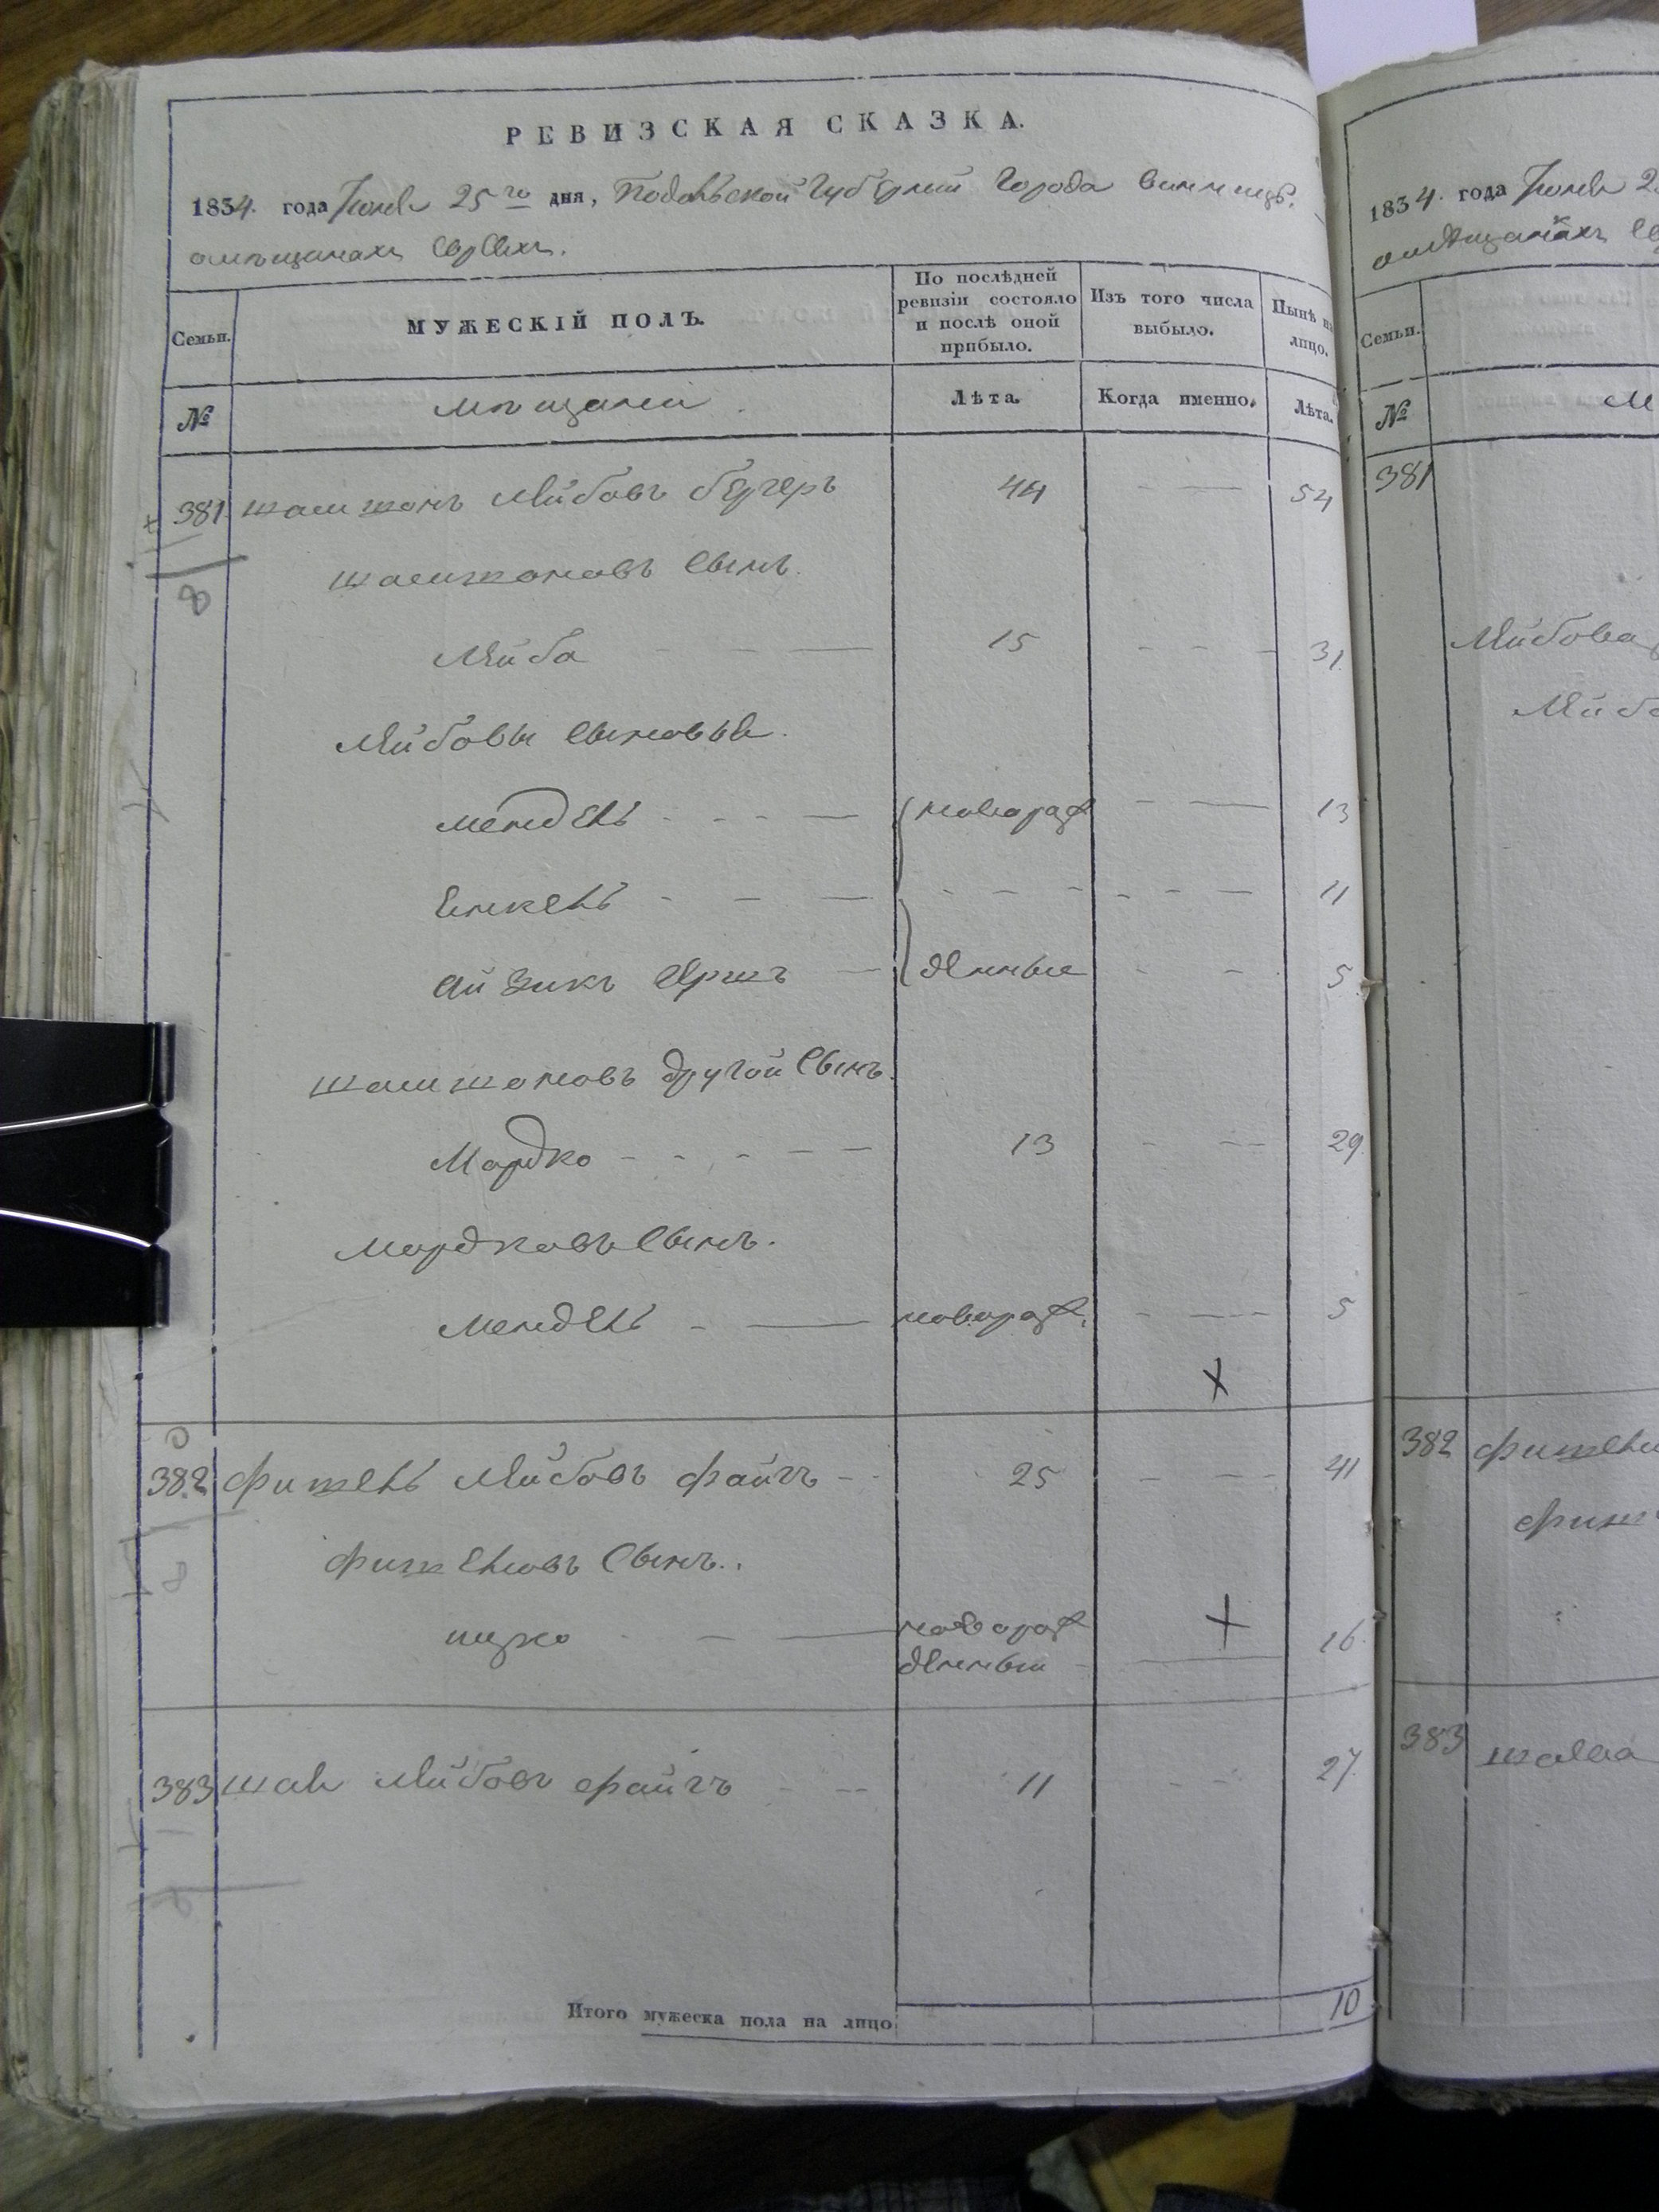 РЕВИЗСКАЯ СКАЗКА.
1834. года Іюня 25го дня, Подольской Губерніи Города Винницѣ.
о мѣщанахъ Евреяхъ.
Семьи.
МУЖЕСКІЙ ПОЛЪ.
По послѣдней ревизіи состояло и послѣ оной прибыло.
Изъ того числа выбыло.
Нынѣ на лицо.
№
мѣщани
Лѣта.
Когда именно.
Лѣта.
381 шамшонъ Лейбовъ бергеръ 44 54
8
шамшоновъ Сынъ.
Лейба 15 31.
Лейбовы Сыновья.
Мендель новорож 13
Енкель 11
Айзикъ Гершъ денные 5
шамшоновъ другой Сынъ.
Мордко 13 29
Мордковъ Сынъ.
Мендель новорож. 5
382 фишель Лейбовъ файгъ 25 41
фишелювъ Сынъ.
ицко новорож 16.
денный
383 шая Лейбовъ файгъ 11 27.
Итого мужеска пола на лицо 10
1834. года Іюня 2
о мѣщанахъ Ев
Семьи.
№ М
381
Лейбова
Лейб
382 фишели
фиш
383 шаява